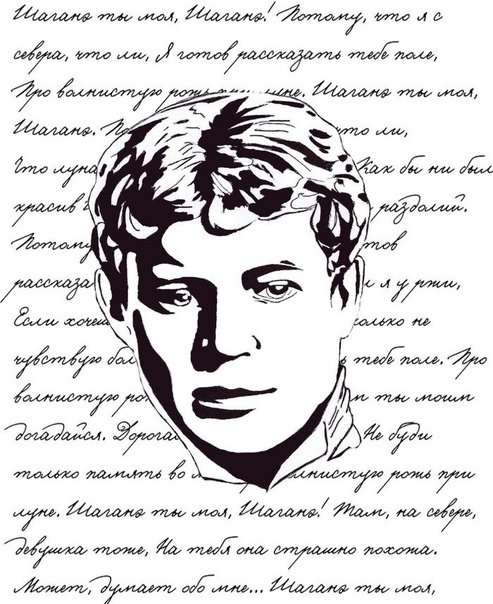 Шаганэ ты моя, Шаганэ! Потому, что я с
севера, что ли, Я готов рассказать тебе поле,
Про волнистую рожь при луне. Шаганэ ты моя,
Шаганэ. По что ли,
Что луна Как бы ни был
красив раздолий.
Потому тов
рассказа и я у ржи,
Если хочешь олько не
чувствую бол тебе поле. Про
волнистую ро ты моим
догадайся. Дорогая Не буди
только память во лнистую рожь при
луне. Шаганэ ты моя, Шаганэ! Там, на севере,
девушка тоже, На тебя она страшно похожа.
Может, думает обо мне... Шаганэ ты моя,